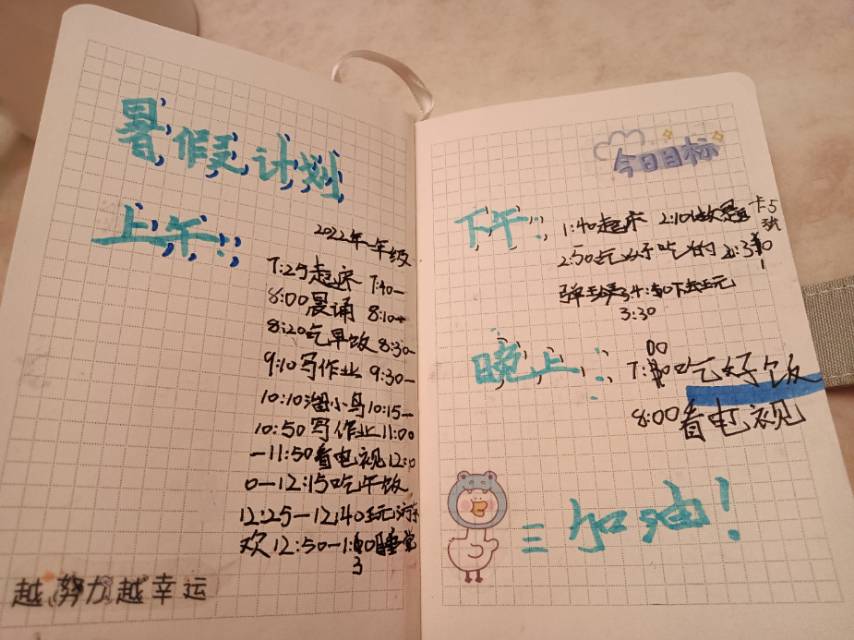 暑假计划
上午:
2022年一年级
7:25起床 7:40—
8:00晨诵 8:10—
8:20吃早饭 8:30—
9:10写作业 9:30—
10:10溜小鸟 10:15—
10:50写作业 11:00
—11:50看电视 12:0
0—12:15吃午饭
12:25—12:40玩
欢 12:50—1:30睡觉
越努力越幸运
今日目标
下午:
1:40起床 2:10
2:50吃好吃的
下去玩
3:30
晚上:
7:00吃好饭
8:00看电视
三 加油!